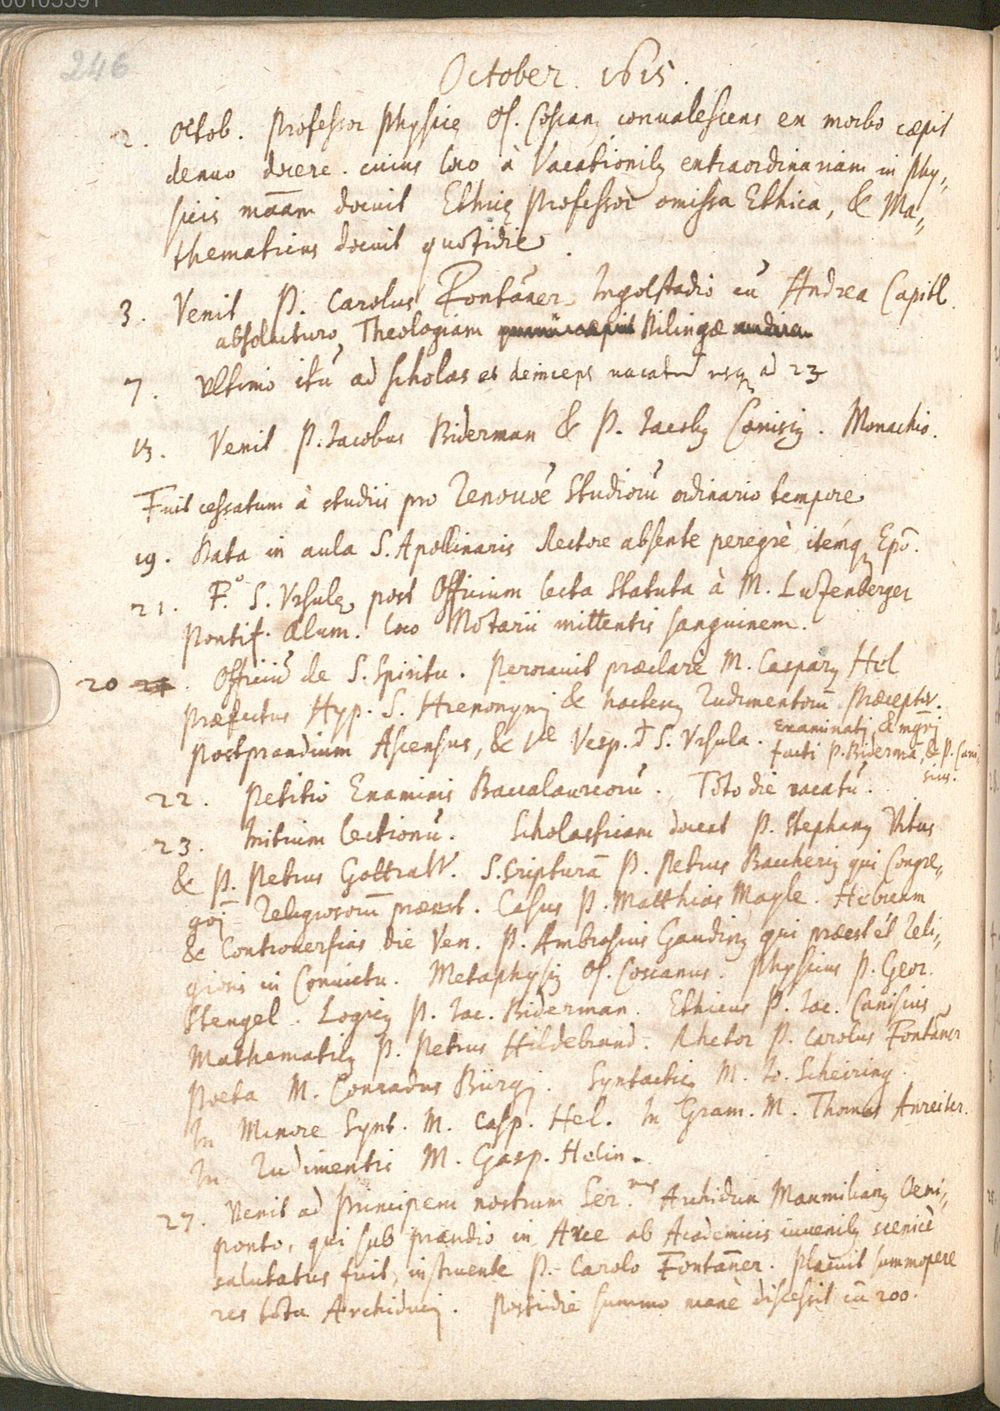 246
October. 1615.
2. Octob. Professor Physicę Os. Coscanꝰ conualescens ex morbo cœpit
denuo docere. cuius loco à Vacationibꝰ extraordinariam in Phy-
sicis m̄am docuit Ethicę Professor omissa Ethica, & Ma-
thematicus docuit quotidie.
3. Venit P. Carolus Fontaner Ingolstadio cū Andrea Capitl
absoluturo Theologiam Dilingæ
7. Ultimo itū ad scholas et deinceps uacatū usq ad 23
13. Venit P. Jacobus Biderman & P. Jacobꝰ Canisiꝰ. Monachio.
Fuit cessatum à studiis pro Renouōe Studiorū ordinario tempore
19. Data in aula S. Apollinaris Rectore absente peregrè itemq Epō.
21. F.º S. Vrsulę post Officium lecta Statuta à M. Lutzenberger
Pontif. Alum. loco Notarii mittentis sanguinem.
20 Officiū de S. Spiritu. Perorauit præclarè M. Casparꝰ Hel
præfectus Hyp. S. Hieronymi & hactenꝰ Rudimentorū Præceptor.
Postprandium Ascensus, & Vesp. S. Vrsula. Examinati, & mgrī
facti P. Biderma, & P. Cani
sius.
22. Petitio Examinis Baccalaureorū. Toto die uacatū.
23. Initium lectionū. Scholasticam docet P. Stephanꝰ Vitus
& P. Petrus Gottraw. S. Scripturā P. Petrus Baccheriꝰ qui Congre-
goī Religiosorū præest. Casus P. Matthias Mayle. Hebræum
& Controuersias die Ven. P. Ambrosius Gaudinꝰ qui præest et Reli-
giosis in Conuictu. Metaphysicꝰ Os. Coscanus. Physicus P. Geor.
Stengel. Logicꝰ P. Jac. Biderman. Ethicus P. Jac. Canisius
Mathematicꝰ P. Petrus Hildebrand. Rhetor P. Carolus Fontaner
Poeta M. Conradus Bürgi. Syntacticꝰ M. Jo. Scheiring.
In Minore Synt. M. Casp. Hel. In Gram. M. Thomas Anreiter.
In Rudimentis M. Gasp. Helin.
27. Venit ad Principem nostrum Ser.mus Archidux Maximilianꝰ Oeni-
ponto, qui sub prandio in Arce ab Academicis iuuenibꝰ scenicè
salutatus fuit, instruente P. Carolo Fontaner. Placuit summopere
res tota Archiduci. Postridie summo mane discessit cū 200.